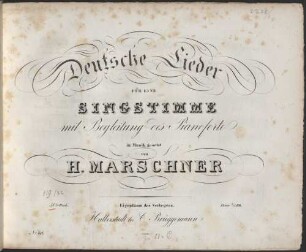 Deutsche Lieder
FÜR EINE
SINGSTIMME
mit Begleitung des Pianoforte
in Musik gesetzt
von
H. MARSCHNER
Eigenthum des Verlegers.
Halberstadt b. C. Brüggemann